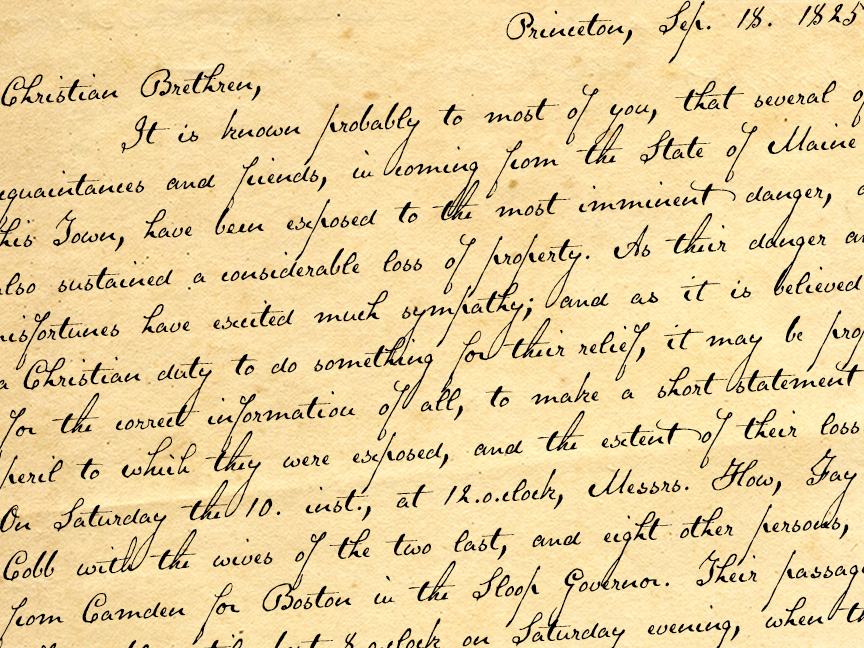 Princeton, Sep. 18. 1825
Christian Brethren,
It is known probably to most of you, that several of
equaintances and friends, in coming from the State of Maine
his Town, have been exposed to the most imminent danger,
also sustained a considerable loss of property. As their danger an
misfortunes have excited much sympathy; and as it is believed
a Christian duty to do something for their relief, it may be prop
for the correct information of all, to make a short statement
peril to which they were exposed, and the extent of their loss
On Saturday the 10. inst., at 12.o.clock, Messrs. How, Fay
Cobb with the wives of the two last, and eight other persons,
from Camden for Boston in the Sloop Governor. Their passage
8 oclock on Saturday evening, when th